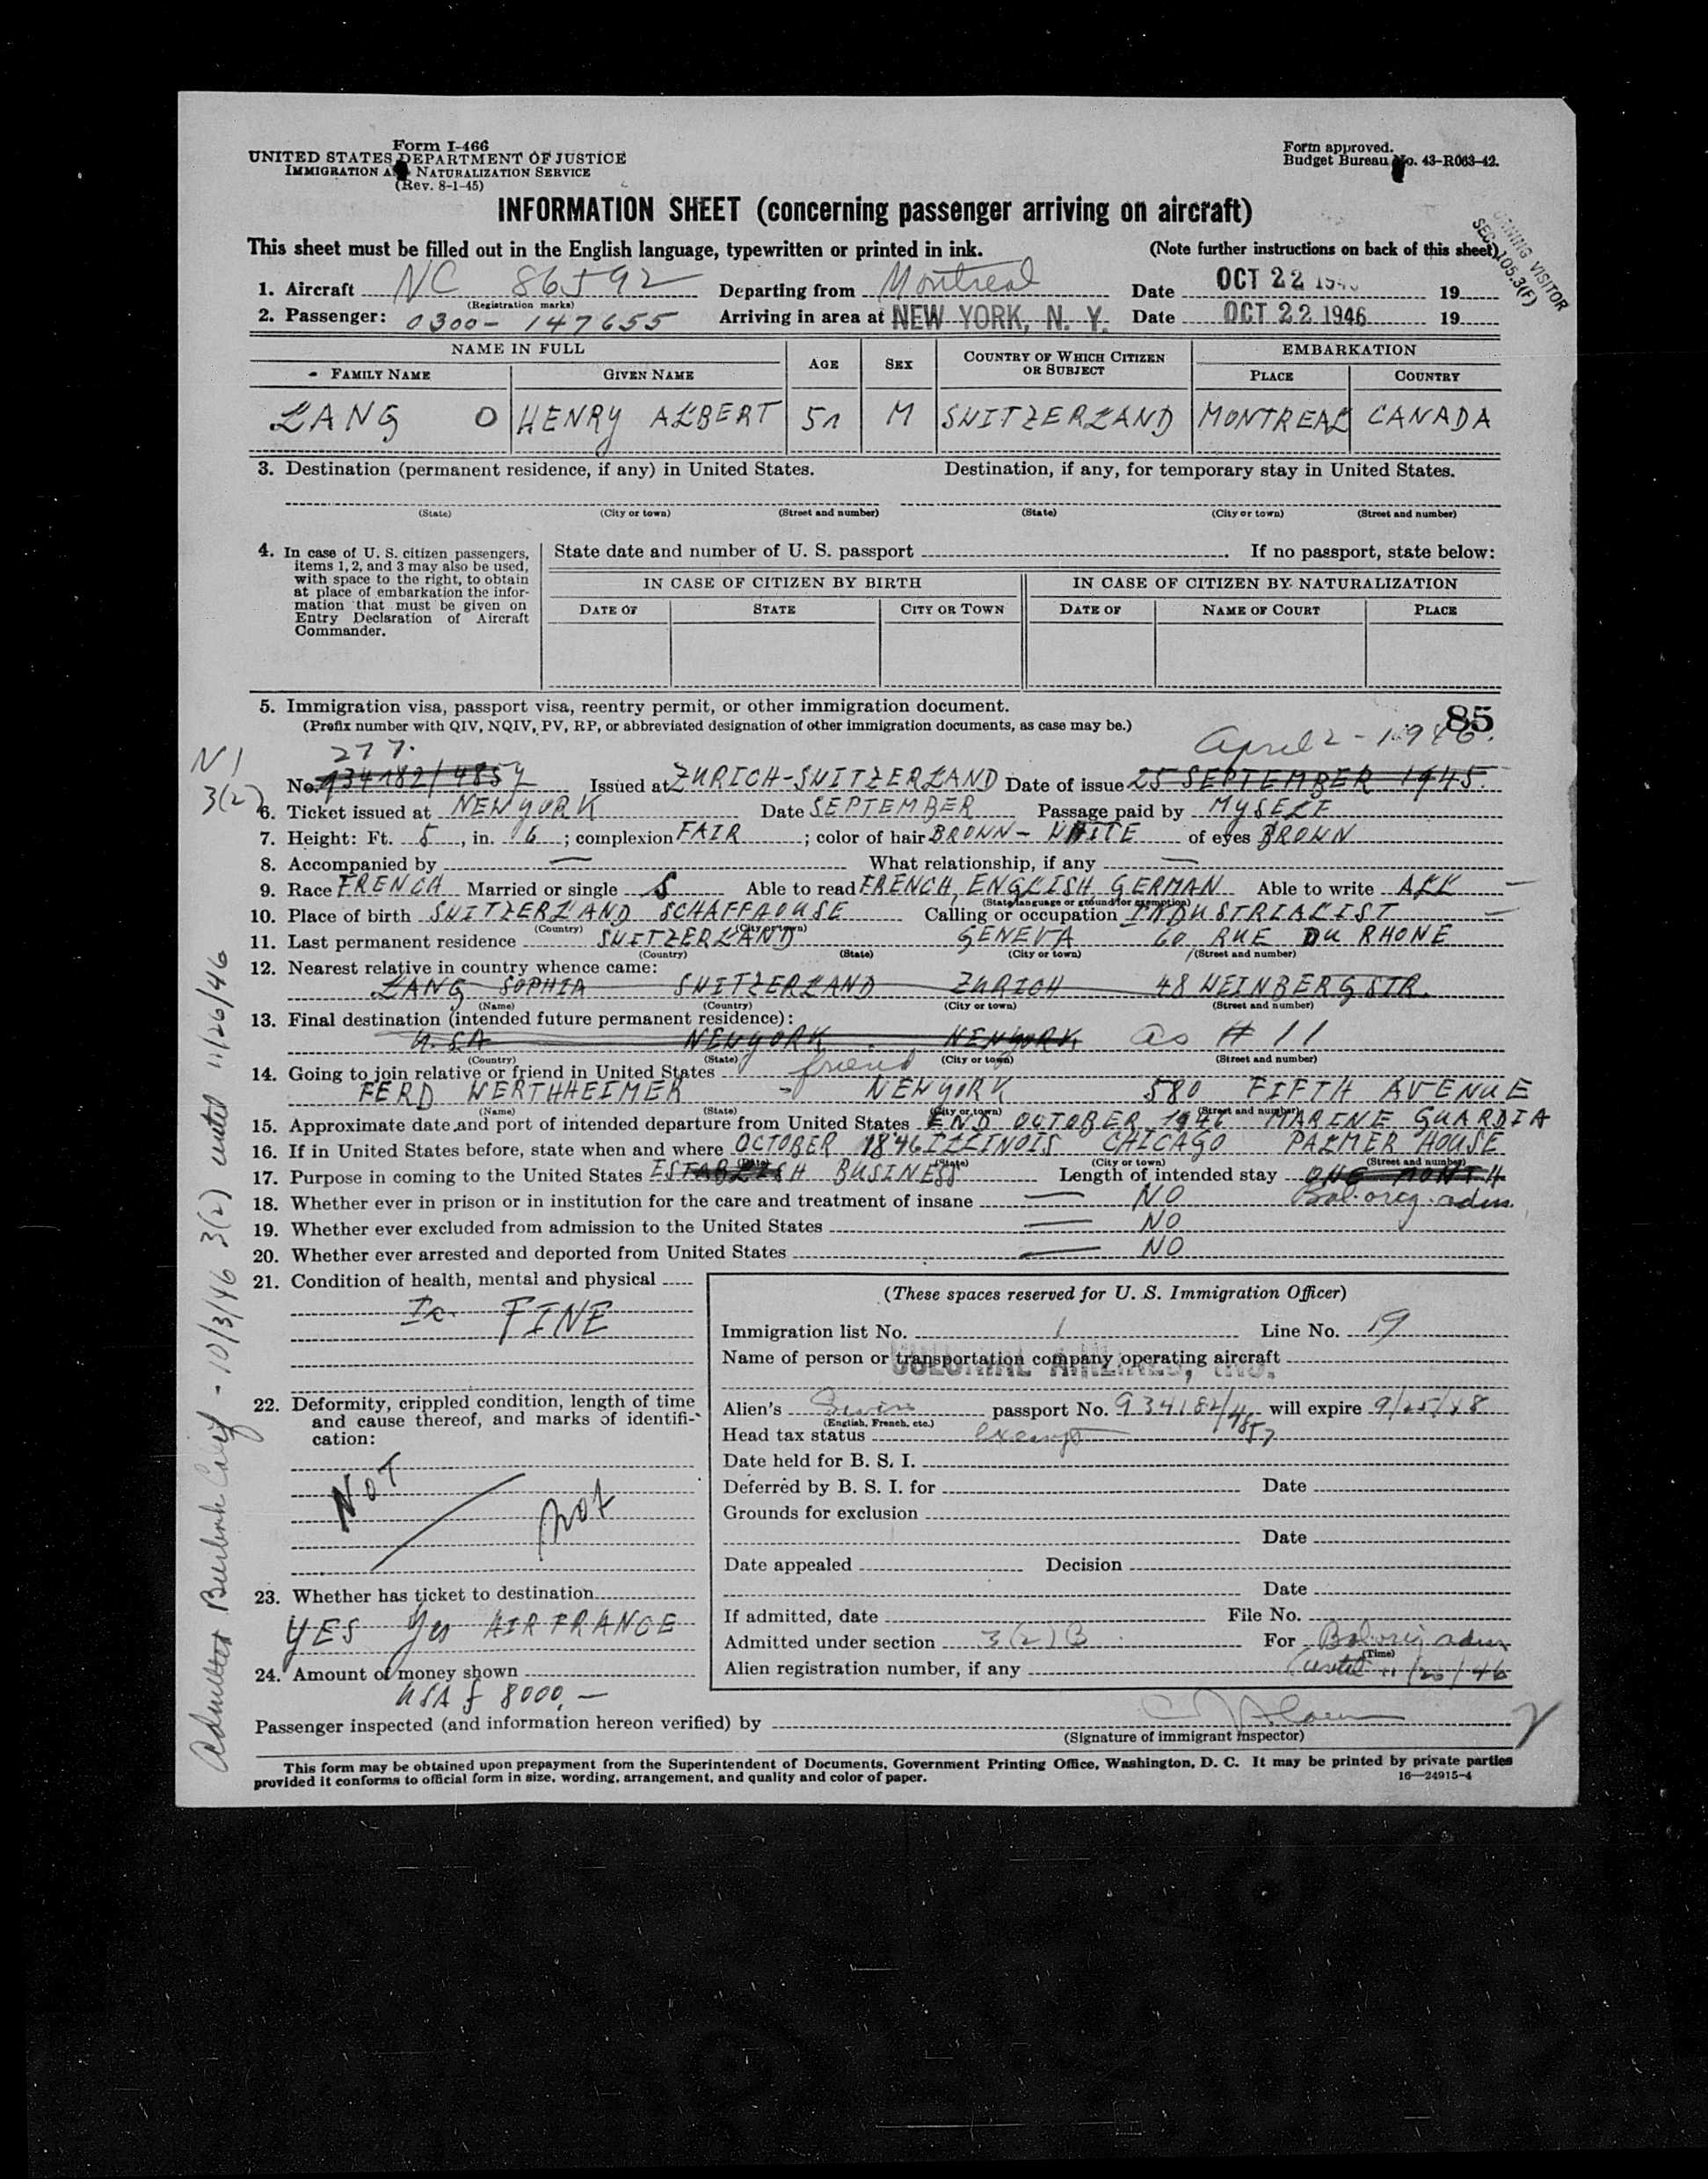 Form I-466
UNITED STATES DEPARTMENT OF JUSTICE
IMMIGRATION AND NATURALIZATION SERVICE
(Rev. 8-1-45)
Form approved.
Budget Bureau No. 43-R063-42.
INFORMATION SHEET (concerning passenger arriving on aircraft)
This sheet must be filled out in the English language, typewritten or printed in ink. (Note further instructions on back of this sheet)
VISITOR
SEC. 105.3(F)
1. Aircraft NC 86592 Departing from Montreal Date OCT 22 1946 19
(Registration marks)
2. Passenger: 0300-147655 Arriving in area at NEW YORK, N. Y. Date OCT 22 1946 19
NAME IN FULL AGE SEX COUNTRY OF WHICH CITIZEN OR SUBJECT EMBARKATION
FAMILY NAME GIVEN NAME PLACE COUNTRY
LANG O HENRY ALBERT 51 M SWITZERLAND MONTREAL CANADA
3. Destination (permanent residence, if any) in United States. Destination, if any, for temporary stay in United States.
(State) (City or town) (Street and number) (State) (City or town) (Street and number)
4. In case of U. S. citizen passengers, items 1, 2, and 3 may also be used, with space to the right, to obtain at place of embarkation the information that must be given on Entry Declaration of Aircraft Commander.
State date and number of U. S. passport . If no passport, state below:
IN CASE OF CITIZEN BY BIRTH IN CASE OF CITIZEN BY NATURALIZATION
DATE OF STATE CITY OR TOWN DATE OF NAME OF COURT PLACE
5. Immigration visa, passport visa, reentry permit, or other immigration document.
(Prefix number with QIV, NQIV, PV, RP, or abbreviated designation of other immigration documents, as case may be.)
85
277. April 2-1946.
3(2)
No. 934182/4857 Issued at ZURICH-SWITZERLAND Date of issue 25 SEPTEMBER 1945.
6. Ticket issued at NEWYORK Date SEPTEMBER Passage paid by MYSELF
7. Height: Ft. 5, in. 6; complexion FAIR; color of hair BROWN-WHITE of eyes BROWN
8. Accompanied by — What relationship, if any —
9. Race FRENCH Married or single S Able to read FRENCH, ENGLISH GERMAN Able to write ALL —
(State language or ground for exemption)
10. Place of birth SWITZERLAND SCHAFFHOUSE Calling or occupation INDUSTRIALIST —
(Country) (City or town)
11. Last permanent residence SWITZERLAND GENEVA 60 RUE DU RHONE
(Country) (State) (City or town) (Street and number)
12. Nearest relative in country whence came:
LANG SOPHIA SWITZERLAND ZURICH 48 WEINBERGSTR.
(Name) (Country) (City or town) (Street and number)
13. Final destination (intended future permanent residence):
U.S.A NEWYORK . NEWYORK. as # 11
(Country) (State) (City or town) (Street and number)
14. Going to join relative or friend in United States friend
FERD WERTHHEIMER - NEWYORK 580 FIFTH AVENUE
(Name) (State) (City or town) (Street and number)
15. Approximate date and port of intended departure from United States END OCTOBER 1946 MARINE GUARDIA
16. If in United States before, state when and where OCTOBER 1846 ILLINOIS CHICAGO PALMER HOUSE
(Date) (State) (City or town) (Street and number)
17. Purpose in coming to the United States ESTABLISH BUSINESS Length of intended stay ONE MONTH
18. Whether ever in prison or in institution for the care and treatment of insane — NO Bal. orig. adm.
19. Whether ever excluded from admission to the United States — NO
20. Whether ever arrested and deported from United States — NO
21. Condition of health, mental and physical
FINE
22. Deformity, crippled condition, length of time and cause thereof, and marks of identification:
NOT / not
23. Whether has ticket to destination
YES Yes AIR FRANCE
24. Amount of money shown
USA $ 8000,—
(These spaces reserved for U. S. Immigration Officer)
Immigration list No. 1 Line No. 19
Name of person or transportation company operating aircraft
COLONIAL AIRLINES, INC.
Alien's Swiss passport No. 934182/4857 will expire 9/25/48
(English, French, etc.)
Head tax status exempt
Date held for B. S. I.
Deferred by B. S. I. for Date
Grounds for exclusion
Date
Date appealed Decision
Date
If admitted, date File No.
Admitted under section 3(2)B For Bal orig adm
(Time)
Alien registration number, if any until 11/26/46
Passenger inspected (and information hereon verified) by
(Signature of immigrant inspector)
This form may be obtained upon prepayment from the Superintendent of Documents, Government Printing Office, Washington, D. C. It may be printed by private parties
provided it conforms to official form in size, wording, arrangement, and quality and color of paper.
16—24915-4
Admitted Burbank Calif - 10/3/46 3(2) until 11/26/46